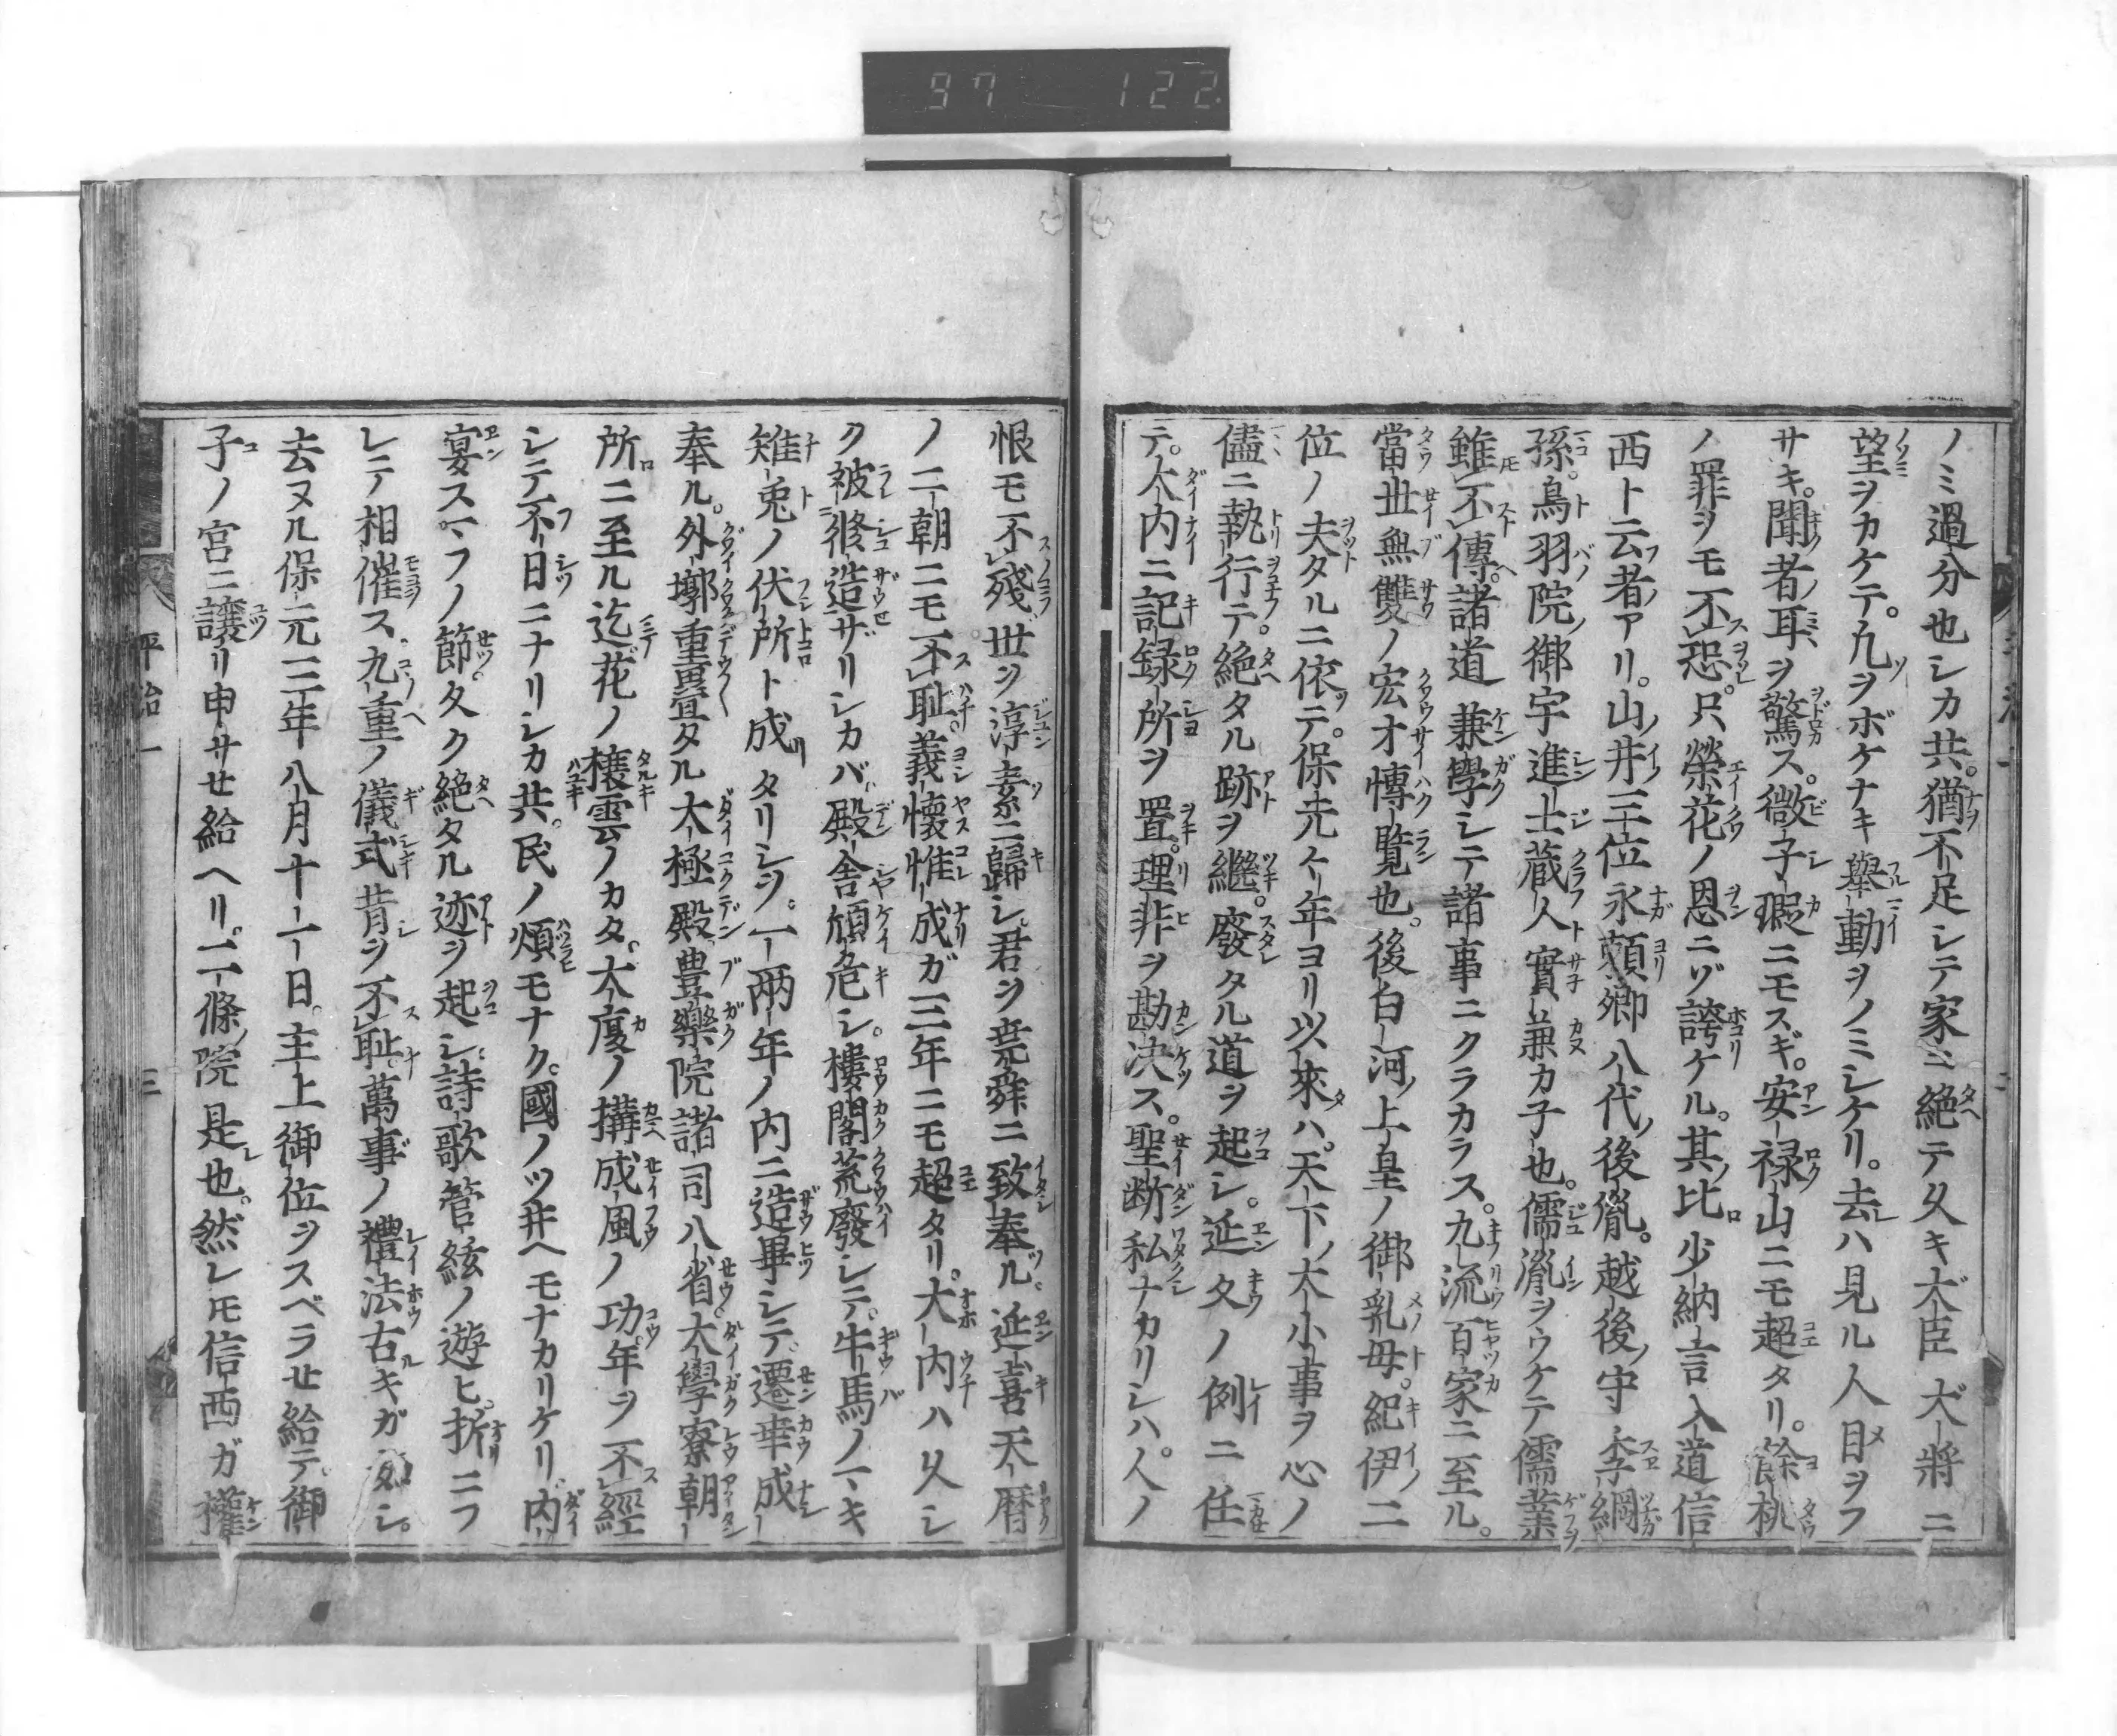 97 122
ノミ過分也シカ共。猶不足シテ家ニ絶テ久キ大臣大將ニ
望ヲカケテ。凢ヲボケナキ舉動ヲノミシケリ。去ハ見ル人目ヲフ
サキ。聞者耳ヲ驚ス。微子瑕ニモスギ。安禄山ニモ超タリ。餘桃
ノ罪ヲモ不恐。只榮花ノ恩ニゾ誇ケル。其比少納言入道信
西ト云者アリ。山井三位永頼卿八代後胤。越後守季綱
孫。鳥羽院御宇進士藏人實兼カ子也。儒胤ヲウケテ儒業
雖不傳。諸道兼學シテ諸事ニクラカラス。九流百家ニ至ル。
當世無雙ノ宏才慱覽也。後白河上皇ノ御乳母。紀伊二
位ノ夫タルニ依テ。保元々年ヨリ以來ハ。天下ノ大小事ヲ心ノ
儘ニ執行テ。絶タル跡ヲ繼。廢タル道ヲ起シ。延久ノ例ニ任
テ。大内ニ記録所ヲ置。理非ヲ勘决ス。聖断私ナカリシハ。人ノ
恨モ不殘。世ヲ淳素ニ歸シ君ヲ尭舜ニ致奉ル。延喜天暦
ノ二朝ニモ不耻。義懐惟成ガ三年ニモ超タリ。大内ハ久シ
ク被修造ザリシカバ。殿舎頽危シ。樓閣荒廢シテ。牛馬ノマキ
雉兎ノ伏所ト成タリシヲ。一兩年ノ内ニ造畢シテ。遷幸成
奉ル。外墎重疊タル大極殿。豊樂院諸司八省。大學寮朝
所ニ至ル迄。花ノ榱雲ノカタ。大廈ノ搆成風ノ功。年ヲ不經
シテ不日ニナリシカ共。民ノ煩モナク。國ノツ井ヘモナカリケリ。内
宴スマフノ節。久ク絶タル迹ヲ起シ。詩歌管絃ノ遊ヒ。折ニフ
レテ相催ス。九重ノ儀式昔ヲ不耻。萬事ノ禮法古キガ如シ。
去ヌル保元三年八月十一日。主上御位ヲスベラセ給テ。御
子ノ宮ニ譲リ申サセ給ヘリ。二條院是也。然レ𪜈信西ガ權
平治一 三